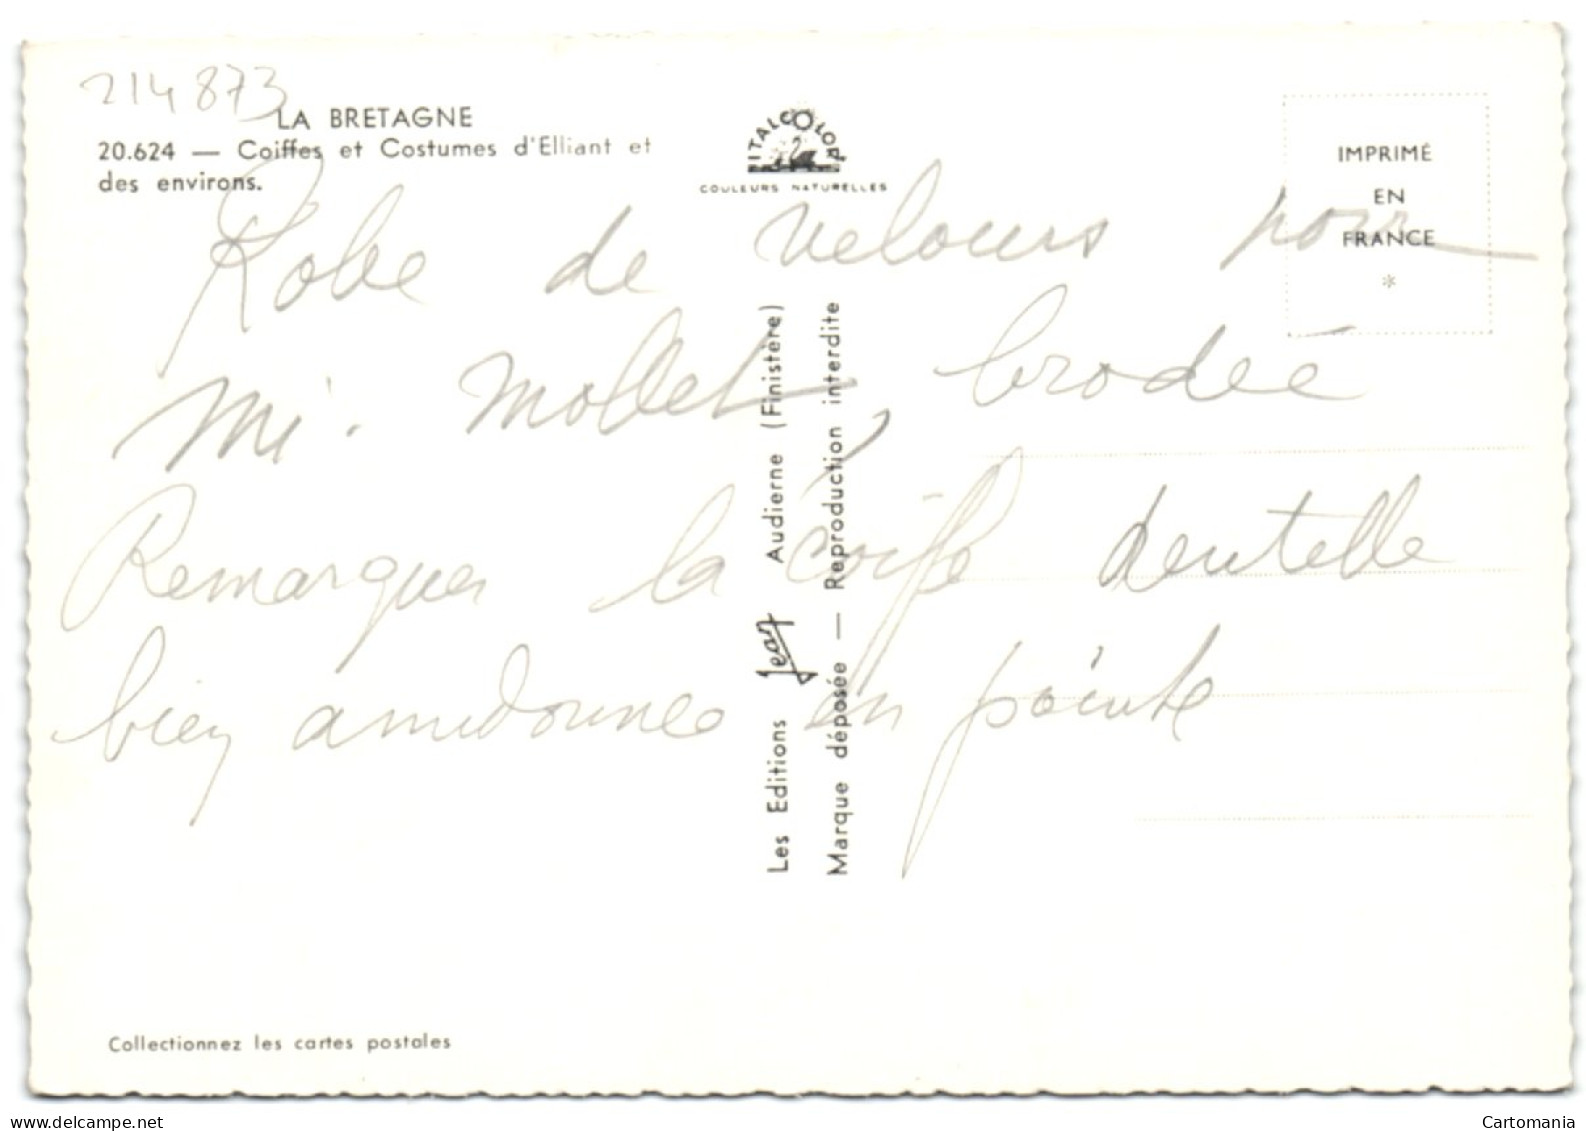 214873
LA BRETAGNE
20.624 — Coiffes et Costumes d'Elliant et
des environs.
ITALCOLOR
COULEURS NATURELLES
IMPRIMÉ
EN
FRANCE
*
Robe de velours pour
mi. mollet, brodée
Remarquer la coiffe dentelle
bien amidonnée en pointe
Les Editions Jean Audierne (Finistère)
Marque déposée — Reproduction interdite
Collectionnez les cartes postales
delcampe.net
Cartomania